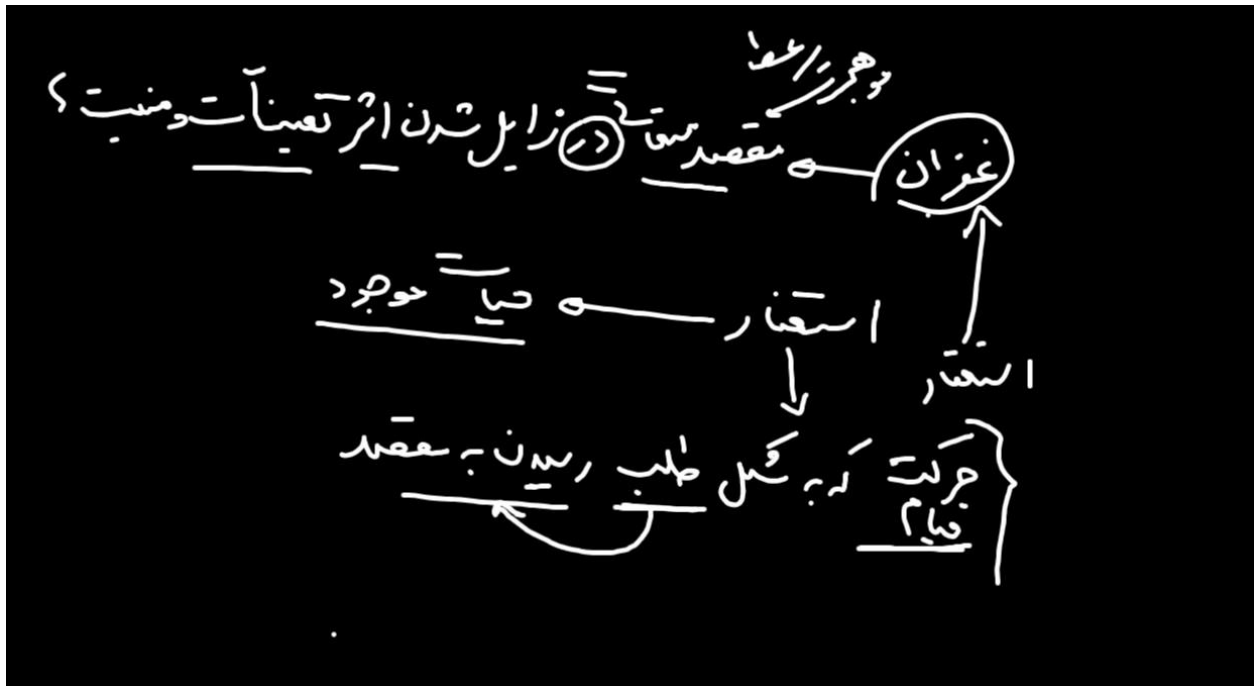 غفران مقصد متعالی در زایل شدن اثر تعینات و منیت؟
استغفار حیات موجود
استغفار
حرکت که به شکل طلب رسیدن به مقصد
قیام